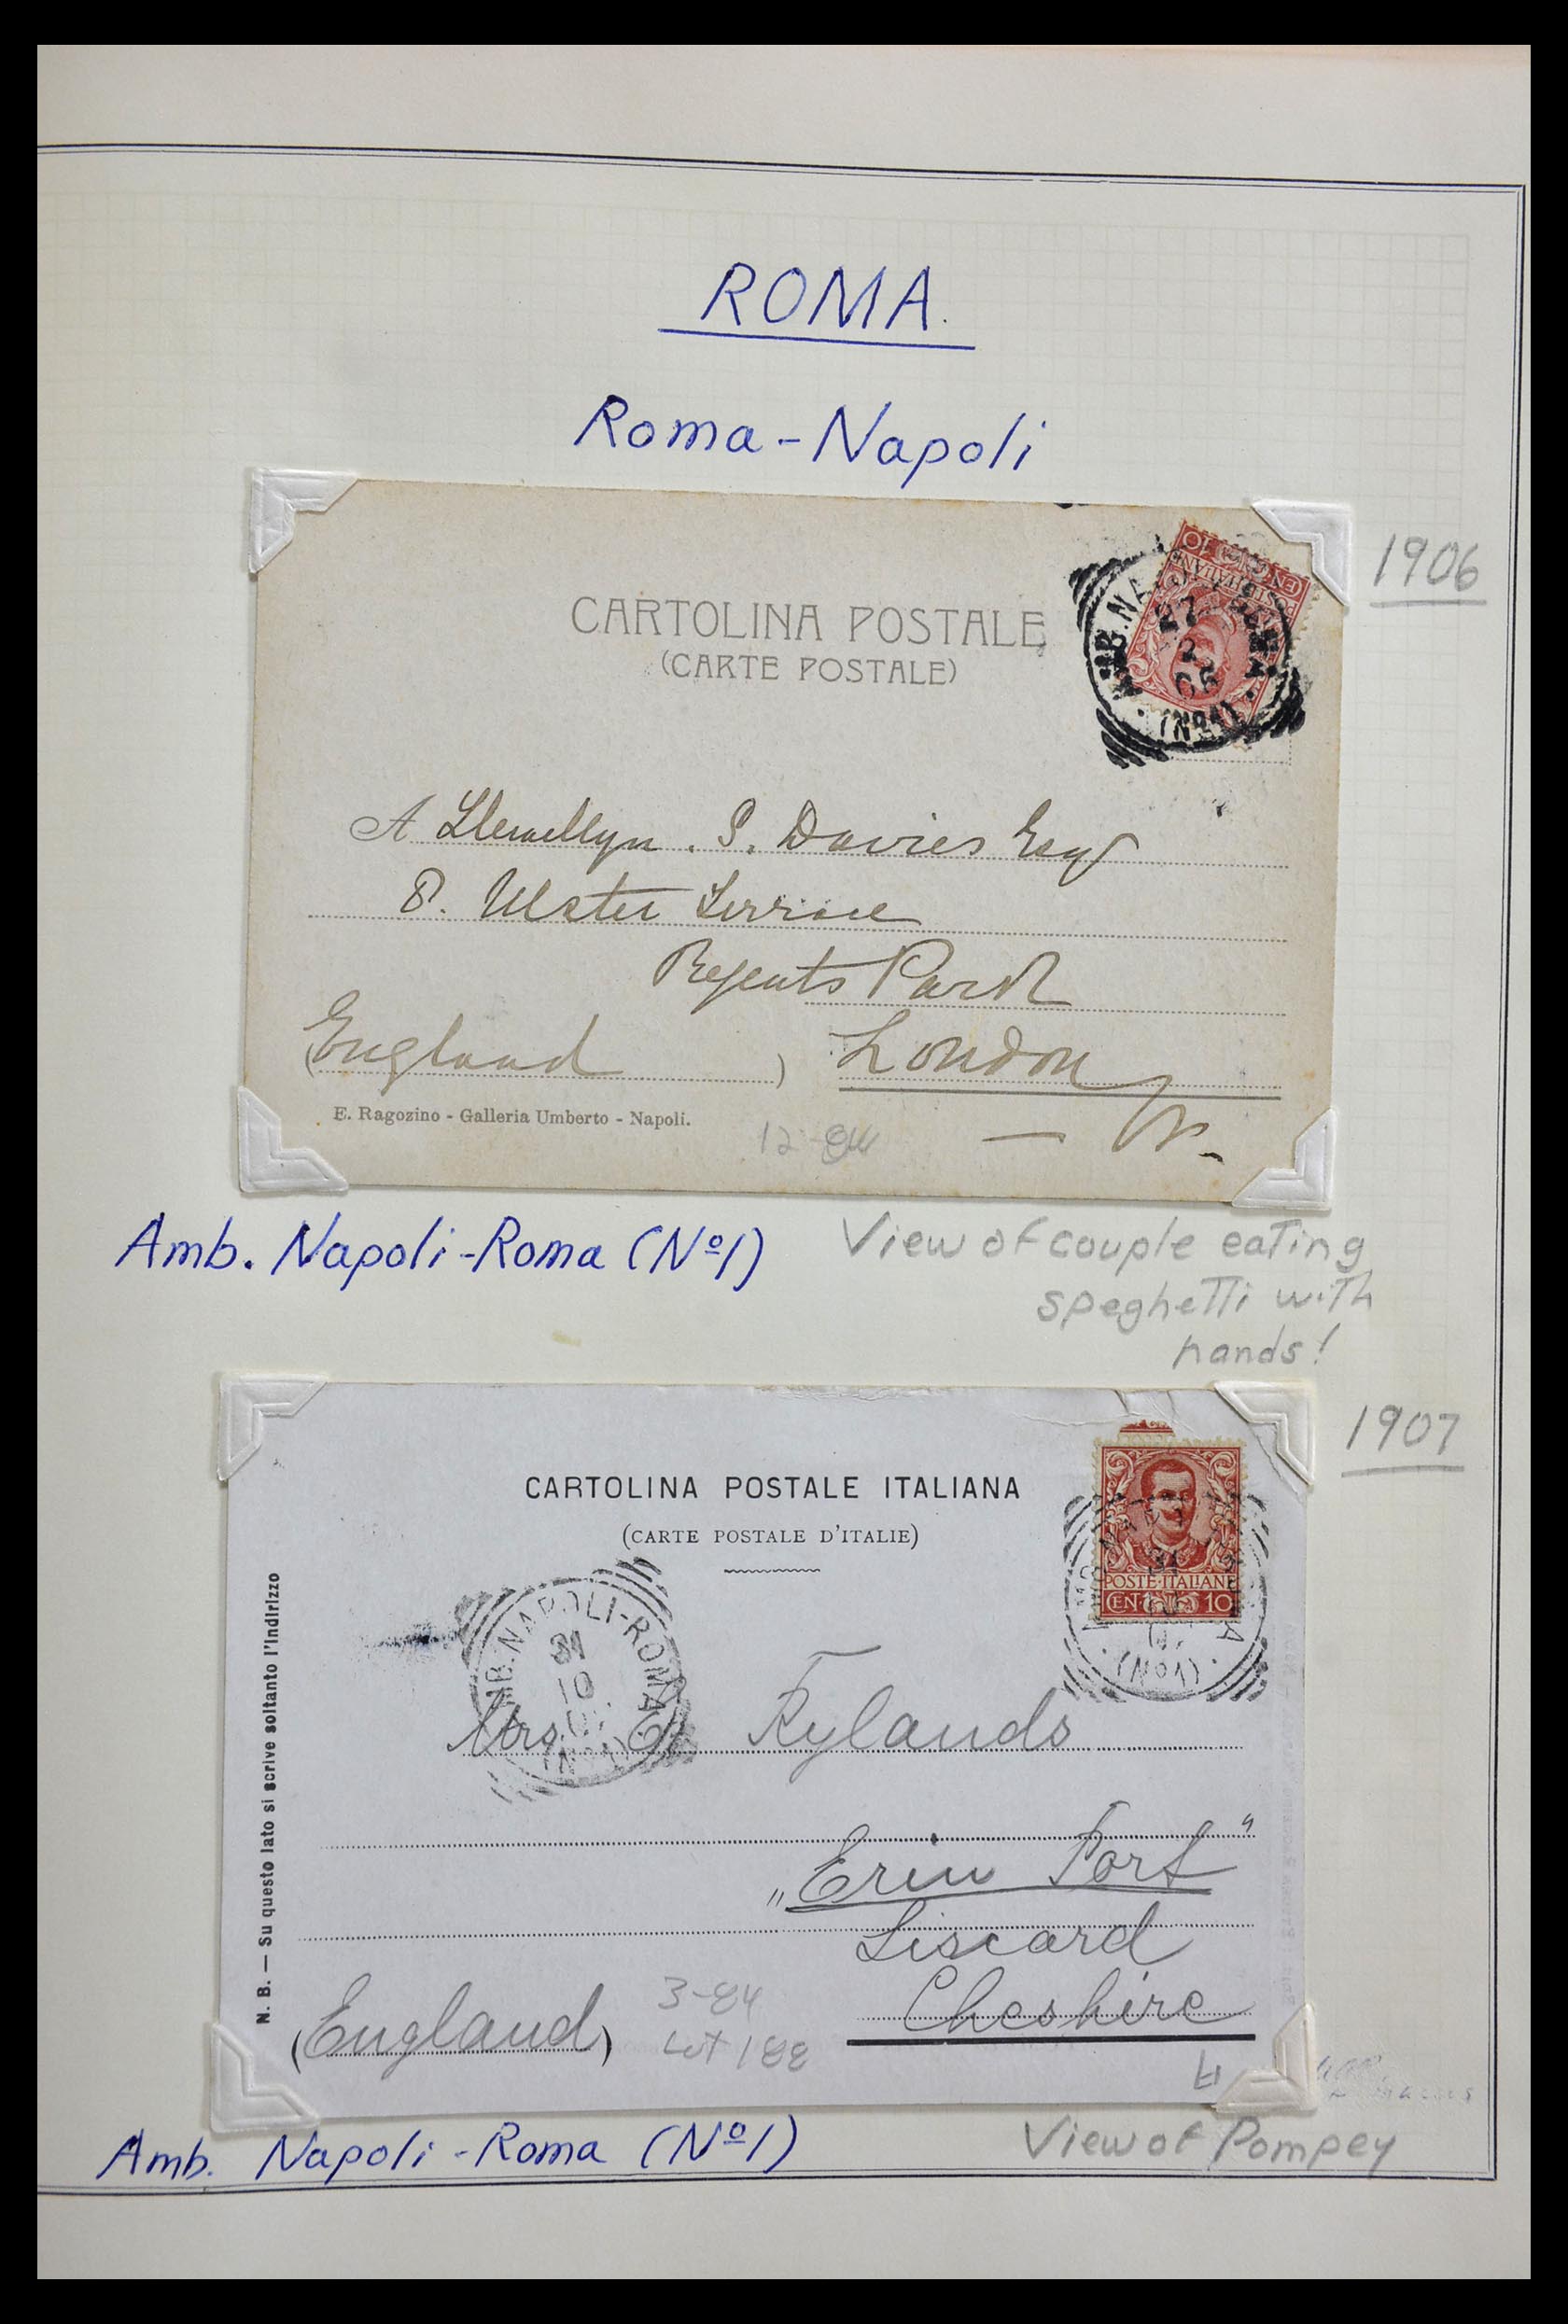 ROMA.
Roma-Napoli
1906
CEN 10
POSTE ITALIANE
27
2
06
(No1)
CARTOLINA POSTALE
(CARTE POSTALE)
A Llewellyn. S. Davies Esq
8. Ulster Terrace
Regents Park
England) London
— W.
E. Ragozino - Galleria Umberto - Napoli.
12-84
Amb. Napoli-Roma (Nº1)
View of couple eating
speghetti with
hands!
1907
CARTOLINA POSTALE ITALIANA
(CARTE POSTALE D'ITALIE)
POSTE·ITALIANE
CEN 10
31
(No1)
AMB. NAPOLI-ROMA
31
10
(No1)
N. B. — Su questo lato si scrive soltanto l'indirizzo
Mrs. Rylands
"Erin Port"
Liscard
Cheshire
(England)
3-84
Lot 188
Amb. Napoli-Roma (Nº1)
View of Pompey